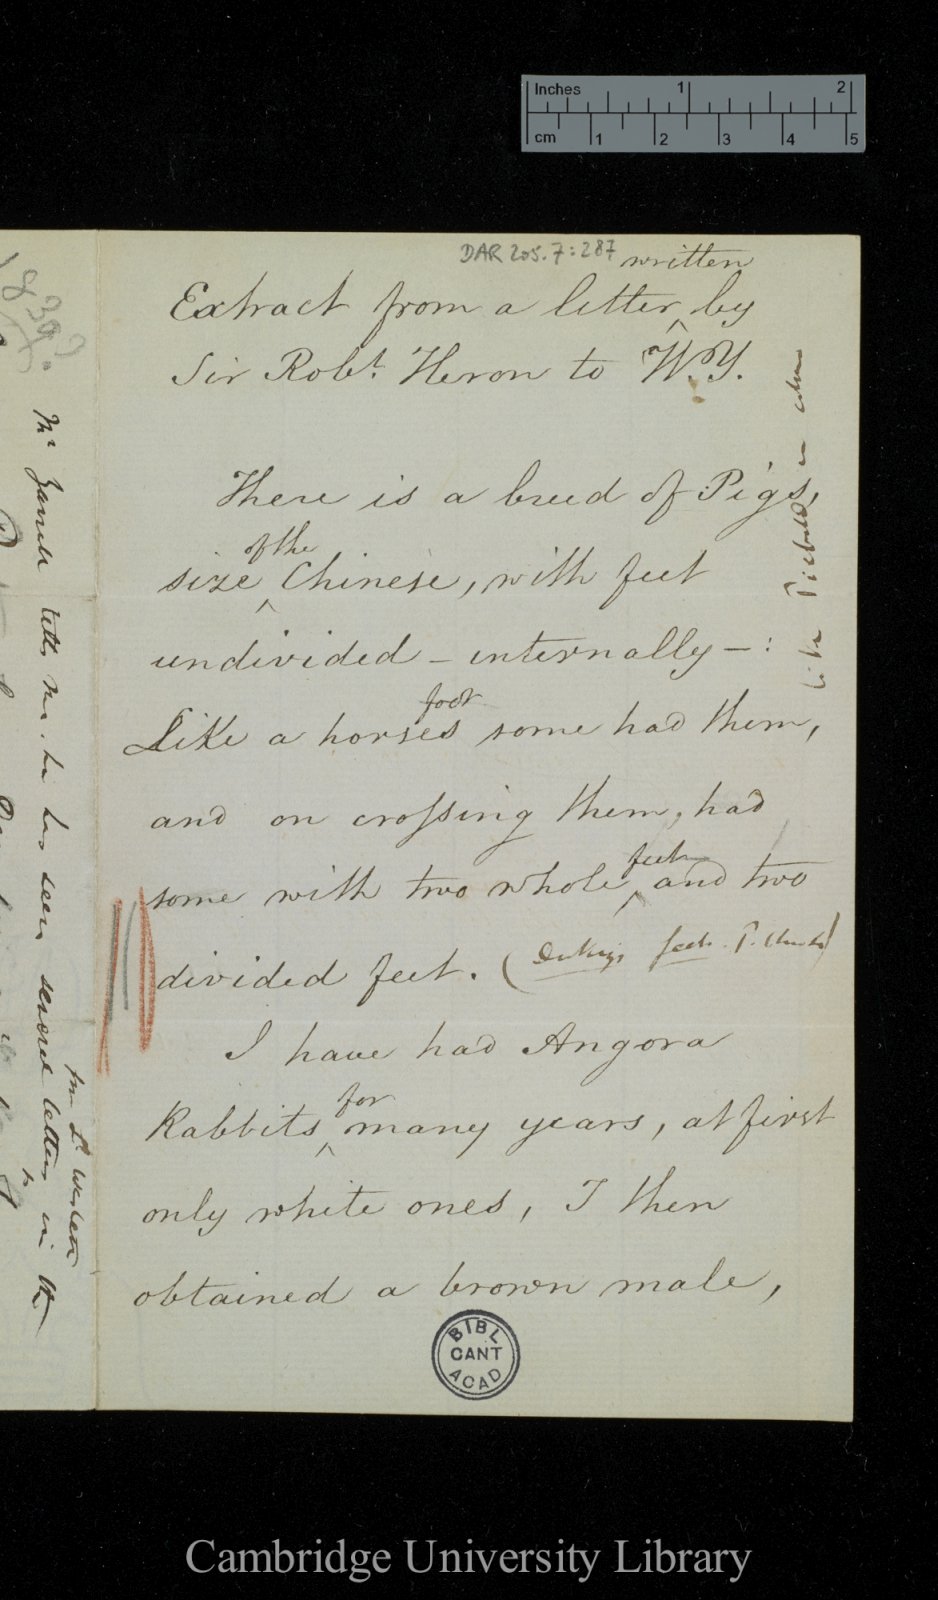 Inches 1 2
cm 1 2 3 4 5
DAR 205.7:287
written
Extract from a letter by
Sir Robt. Heron to W.Y.
There is a breed of Pigs,
of the
size Chinese, with feet
undivided — internally — :
foot
Like a horses some had them,
and on crossing them, had
feet
some with two whole and two
divided feet. ( feet.
I have had Angora
for
Rabbits many years, at first
only white ones, I then
obtained a brown male,
BIBL
CANT
ACAD
1839?
Mr Yarrell tells me, he has seen several letters in the
Cambridge University Library